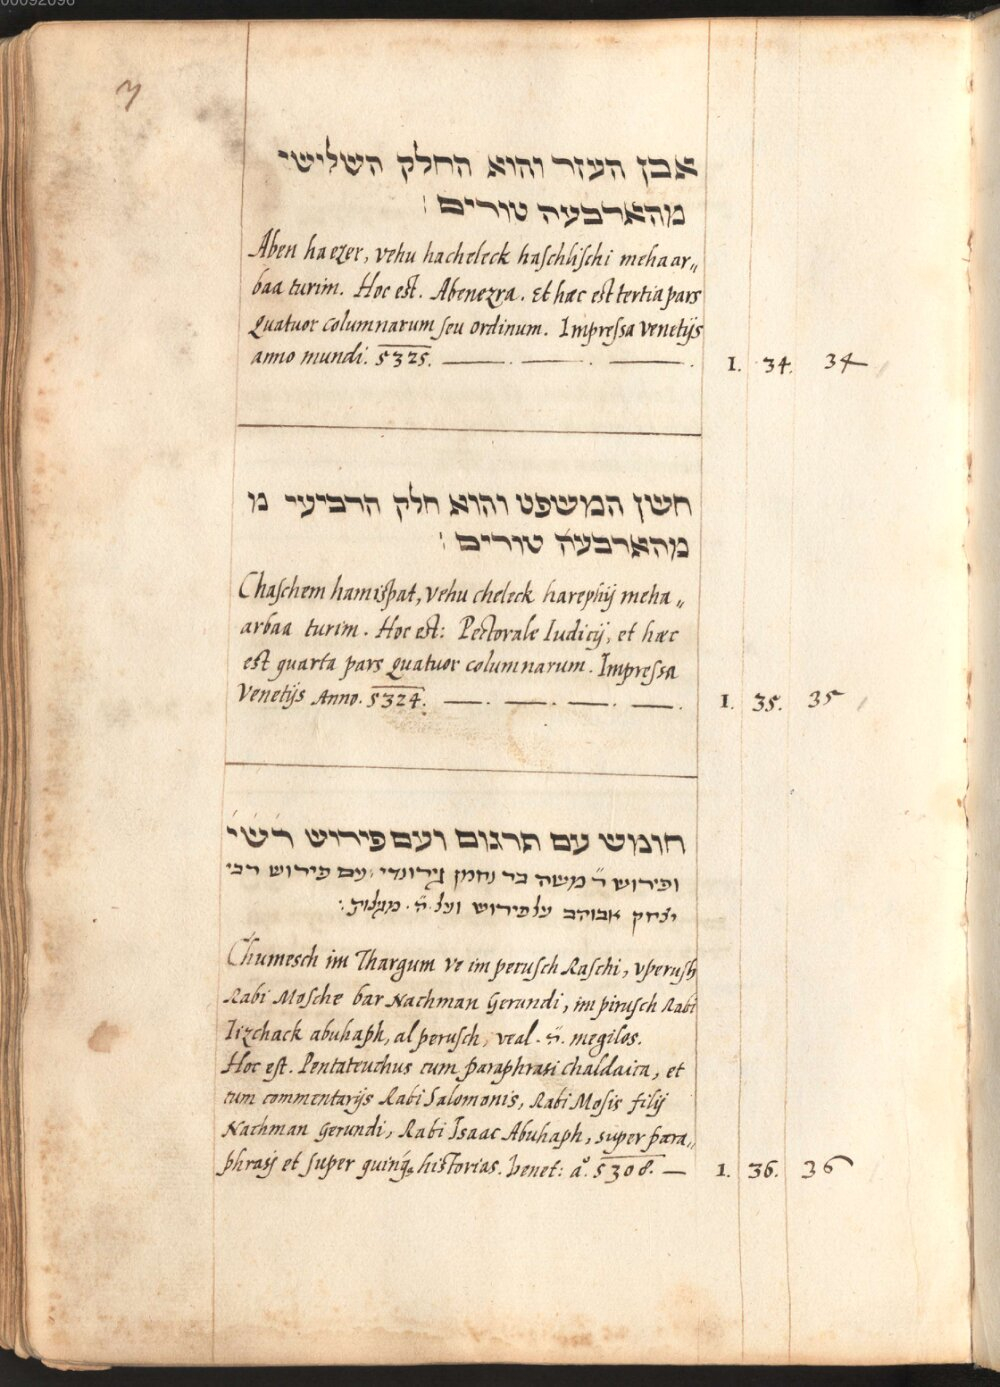 00092096
אבן העזר והוא החלק השלישי
מהארבעה טורים :
Aben haezer, vehu hacheleck haſchliſchi mehaar„
baa turim. Hoc est. Abenezra. Et hæc est tertia pars
Quatuor columnarum ſeu ordinum. Impreſsa Venetijs
anno mundi. 5325. — . — . — .
I. 34. 34
חשן המשפט והוא חלק הרביעי מ
מהארבעה טורים :
Chaſchem hamiſpat, vehu cheleck harephij meha„
arbaa turim. Hoc est: Pectorale Iudicij, et hæc
est quarta pars quatuor columnarum. Impreſsa
Venetijs Anno. 5324. — . — . — . — .
I. 35. 35
חומש עם תרגום ועם פירוש רש״י
ופירוש ר׳ משה בר נחמן גירונדי, עם פירוש רבי
יצחק אבוהב על פירוש ועל ה׳. מגלות :
Chumesch im Thargum ve im peruſch Raſchi, vperuſh
Rabi Moſche bar Nachman Gerundi, im piruſch Rabi
Iizchack abuhaph, al peruſch, veal . ה׳. megilos.
Hoc eſt. Pentateuchus cum paraphrasi chaldaica, et
cum commentarijs Rabi Salomonis, Rabi Moſis filij
Nachman Gerundi, Rabi Isaac Abuhaph, super para„
phrasi et ſuper quinq; hiſtorias. Venet: aº. 5308. —
1. 36. 36